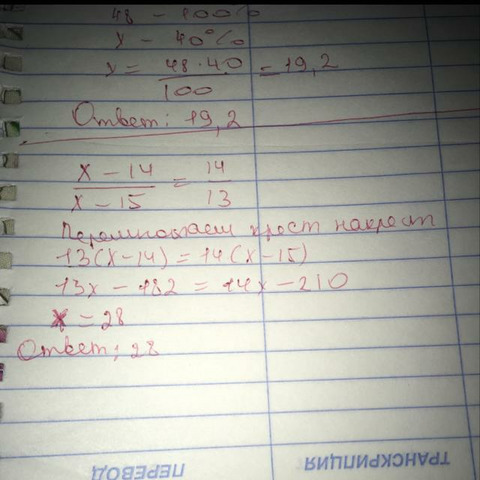 48 - 100%
x - 40%
x = 48 · 40 / 100 = 19,2
Ответ: 19,2
x - 14 / x - 15 = 14 / 13
Перемножаем крест накрест
13(x-14) = 14(x-15)
13x - 182 = 14x - 210
x = 28
Ответ: 28
ПЕРЕВОД
ТРАНСКРИПЦИЯ